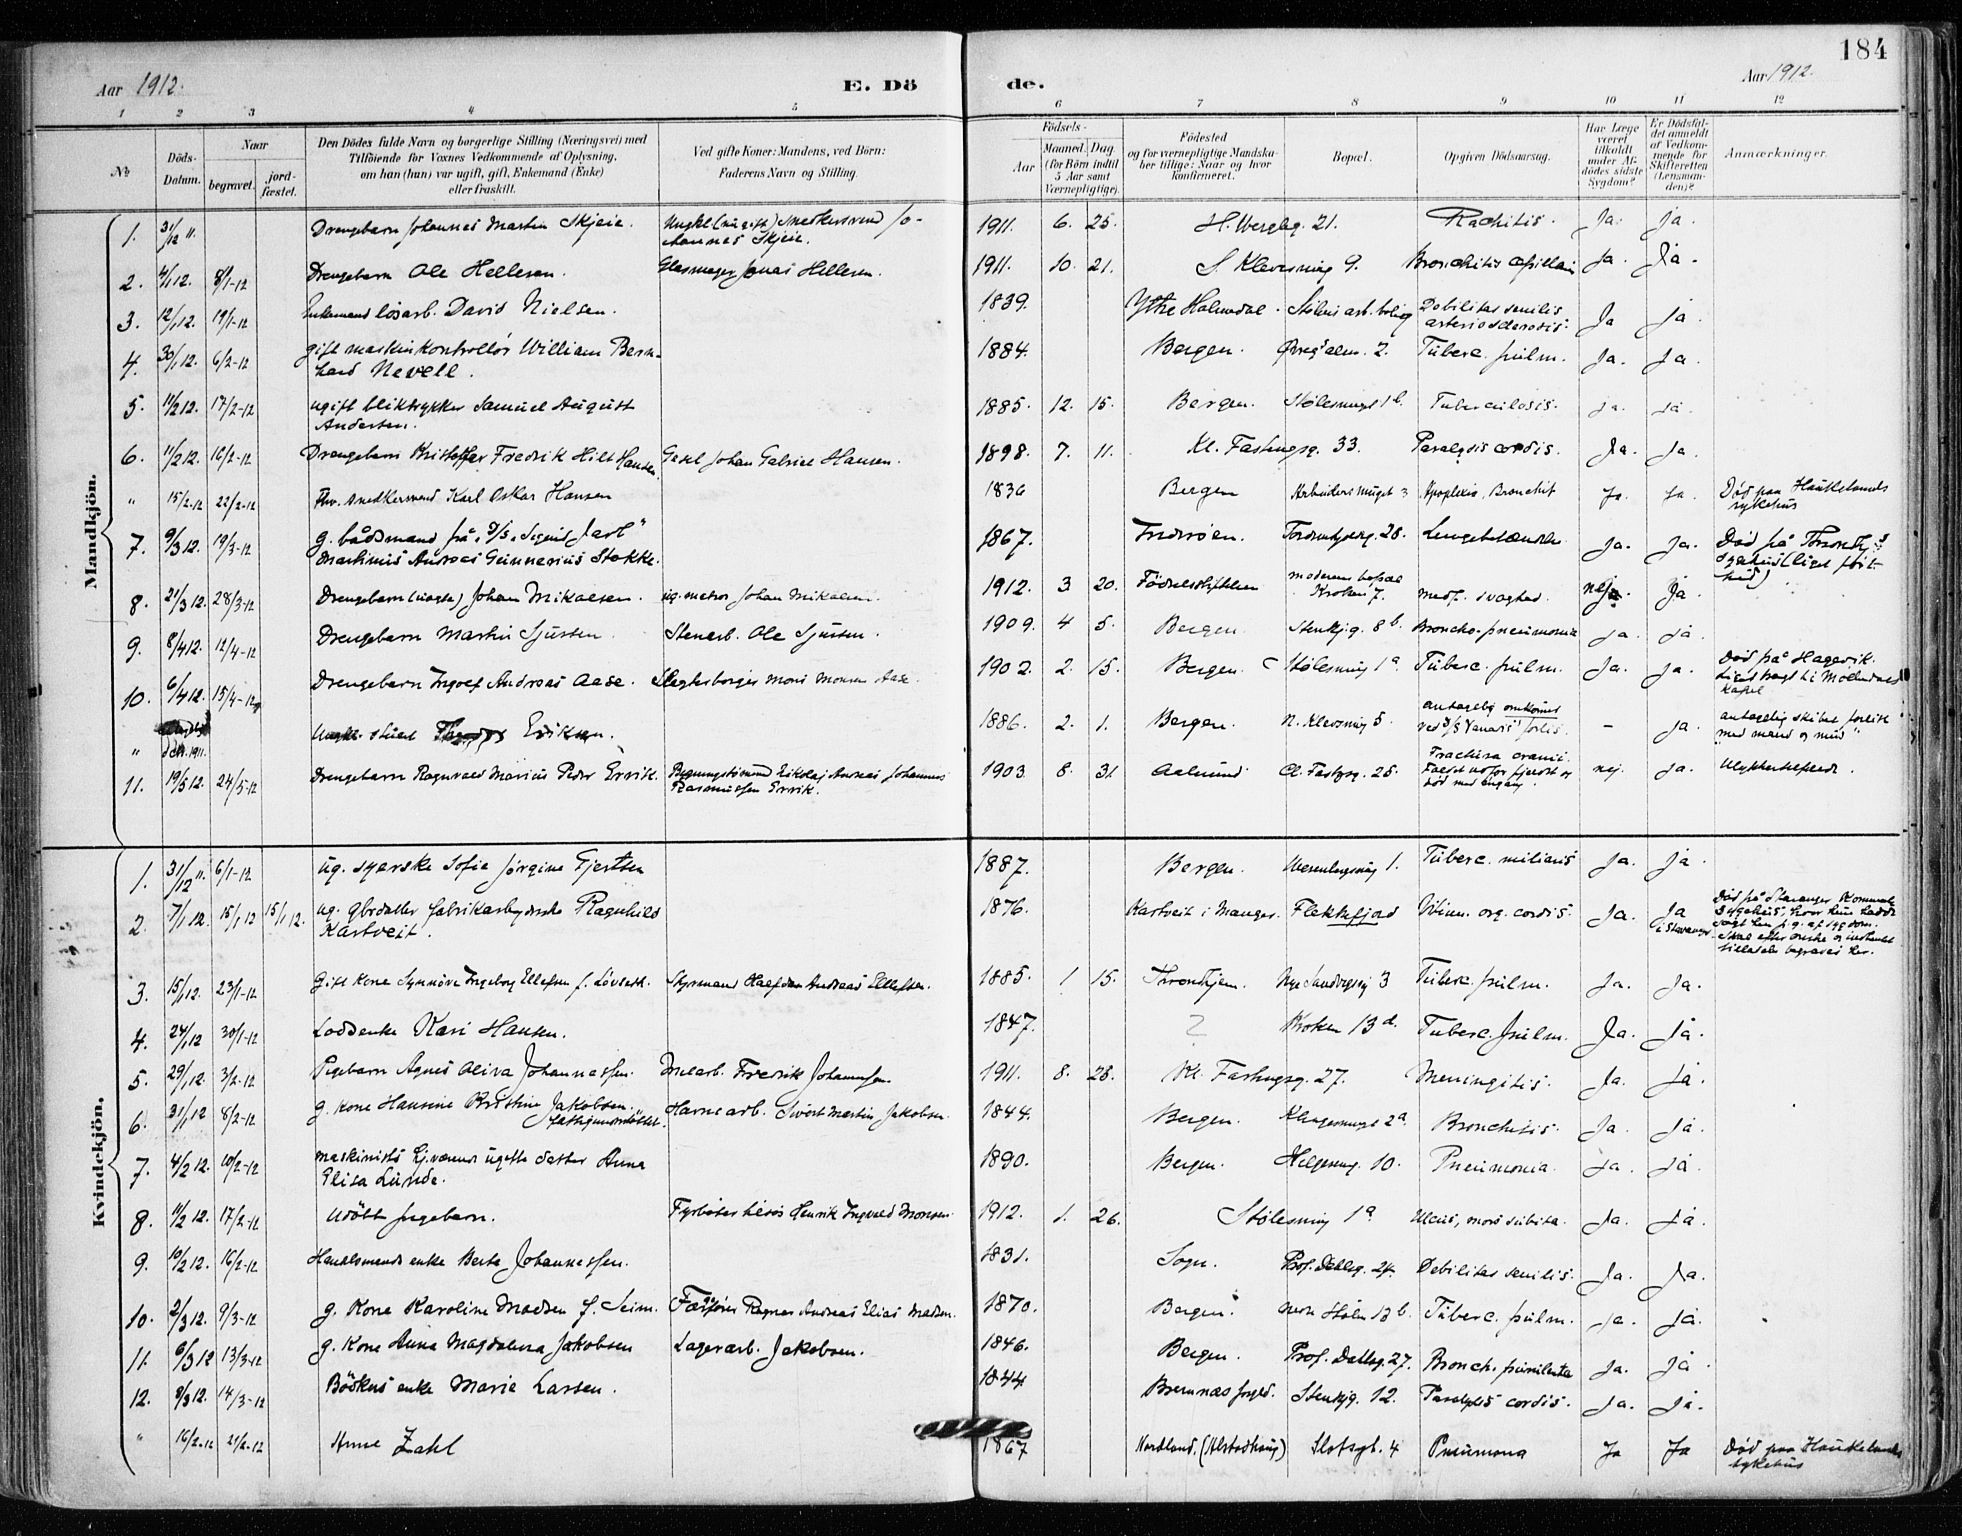 184
Aar 1912.
E. Dö
de.
Aar 1912.
1 2 3 4 5 6 7 8 9 10 11 12
№
Döds-Datum.
Naar
begravet.
jord-fæstet.
Den Dödes fulde Navn og borgerlige Stilling (Næringsvei) med
Tilföiende for Voxnes Vedkommende af Oplysning,
om han (hun) var ugift, gift, Enkemand (Enke)
eller fraskilt.
Ved gifte Koner: Mandens, ved Börn:
Faderens Navn og Stilling.
Födsels-
Aar
Maaned. Dag.
(for Börn indtil
5 Aar samt
Værnepligtige).
Födested
og for værnepligtige Mandska-
ber tillige: Naar og hvor
konfirmeret.
Bopæl.
Opgiven Dödsaarsag.
Har Læge
været
tilkaldt
under Af-
dödes sidste
Sygdom?
Er Dödsfal-
det anmeldt
af Vedkom-
mende for
Skifteretten
(Lensman-
den)?
Anmærkninger.
Mandkjön.
1. 31/12 11. Drengebarn Johannes Martin Skjeie. Ungkl. (nu gift) Snedkersvend Jo-
hannes Skjeie. 1911. 6. 25. H. Wergelg. 21. Rachitis. Ja. Ja.
2. 4/1 12. 8/1-12 Drengebarn Ole Hellesen. Glasmager Jonas Hellesen. 1911. 10. 21. S. Kleivesmug 9. Bronchitis capillaris Ja. Ja.
3. 12/1 12. 19/1-12 Enkemand lösarb. David Nielsen. 1839. Ytre Holmedal. Stölens arb. bolig Debilitas senilis
arteriosclerosis. Ja Ja.
4. 30/1 12. 6/2-12 gift maskinkontrollör William Bern-
hard Nevell. 1884. Bergen. Øvregs alm. 2. Tuberc. pulm. Ja. Ja.
5. 11/2 12. 17/2-12 ugift bliktrykker Samuel August
Andersen. 1885. 12. 15. Bergen. Stölesmuget 1 b. Tuberculosis. ja. ja.
6. 11/2 12. 16/2-12 Drengebarn Kristoffer Fredrik Hilt Hansen Johan Gabriel Hansen. 1898. 7. 11. Kl. Fastingsg. 33. Paralysis cordis. Ja. Ja.
" 15/2-12 22/2-12 Fhv. snedkersvend Karl Oskar Hansen 1836 Bergen Arbeidersmuget 3 Apoplexia, Bronchit Ja. Ja. Död paa Haukelands
sykehus
7. 9/3 12. 19/3-12 g. bådsmand på D/S "Sigurd Jarl"
Martinus Andreas Gunnerius Stokke. 1867. Inderøen. Tordenskjoldsg. 28. Lungebetændelse Ja. Ja. Död på Trondhj.s
sygehus (liget hit-
8. 21/3 12. 28/3-12 Drengebarn (uægte) Johan Mikalsen. ug. matros Johan Mikalsen. 1912. 3 20. Födselsstiftelsen moderens bopæl
Kroken 7. medf. svaghed. nej. Ja.
9. 8/4 12. 12/4-12 Drengebarn Martin Sjursen. Stenarb. Ole Sjursen. 1909. 4 5. Bergen. Stenkjg. 8 b. Broncho-pneumonia ja. ja.
10. 6/4 12. 15/4-12 Drengebarn Ingolf Andreas Aase. Slagterborger Mons Monsen Aase. 1902. 2. 15. Bergen. Stölesmug 1 a. Tuberc. pulm. Ja. Ja. Död på Hagevik.
Liget bragt til Möllendals
kapel
" 1911. Ungkl. stuert Eriksen. 1886. 2. 1. Bergen. N. Kleivsmug 5. antagelig omkommet
ved D/S forlis. – Ja. antagelig skibet forlist
"med mand og mus"
11. 19/5 12. 24/5-12 Drengebarn Ragnvald Marius Peder Ervik. Nikolaj Andreas Johannes
Rasmussen Ervik. 1903. 8. 31. Aalesund Kl. Fastgsg. 25. Fractura cranii.
Faldt ud for fjeldet og
död med engang. nej. ja. Ulykkestilfælde.
Kvindekjön.
1. 31/12 11. 6/1-12 ug. syerske Sofie Jörgine Gjertsen 1887. Bergen. Wesenbergsmug 1. Tuberc. miliaris Ja. Ja.
2. 7/1 12. 15/1 12 15/1 12. ug. gbrdatter fabrikarbeiderske Ragnhild
Kartveit. 1876. Kartveit i Manger. Flekkefjord Vitium org. cordis. Ja. Ja
i Stavanger Död på Stavanger Kommunale
Sygehus, hvor hun hadde
sögt hen p. g. af sygdom.
Skal efter önske og indhentet
tilladelse begraves her.
3. 15/1 12. 23/1-12 Gift Kone Synnöve Ingeborg Ellefsen f. Lövseth. Styrmand Halfdan Andreas Ellefsen. 1885. 1 15. Trondhjem. Nye Sandvigsvei 3 Tuberc. pulm. Ja. Ja.
4. 24/1 12 30/1-12 Loddsenke Kari Hansen. 1847. ? Kroken 13 d. Tuberc. pulm. Ja. Ja.
5. 29/1 12. 3/2-12 Pigebarn Agnes Oliva Johannessen. Fredrik Johannessen. 1911. 8. 28. Kl. Fastingsg. 27. Meningitis. Ja. Ja.
6. 31/1 12 8/2-12 g. Kone Hansine Kristine Jakobsen.
fattigunderstöttet. Havnearb. Sivert Martin Jakobsen. 1844. Bergen. Klingesmuget 2 a. Bronchitis. Ja. Ja.
7. 4/2 12. 10/2-12 maskinists gjenværende ugifte datter Anna
Elisa Lunde. 1890. Bergen. Helgesmug. 10. Pneumonia. Ja. Ja.
8. 11/2 12. 17/2-12 Udöbt pigebarn. Fyrböter Henrik Ingvald Monsen. 1912. 1. 26. Stölesmug 1 a. Ulcus, mors subita. Ja. Ja.
9. 10/2 12. 16/2-12 Handelsmands enke Berte Johannessen. 1831. Sogn. Prof. Dahlsg. 24. Debilitas senilis. Ja. Ja.
10. 2/3 12. 9/3-12 g. Kone Karoline Madsen f. Seim. Ragnar Andreas Elias Madsen. 1870. Bergen. Nedre Stölen 13 b. Tuberc. pulm. Ja. Ja.
11. 6/3 12 13/3-12 g. Kone Anna Magdalena Jakobsen Lagerarb. Jakobsen. 1846. Bergen. Prof. Dahlsg. 27. Bronch. purulenta Ja. Ja.
12. 8/3 12. 14/3-12 Bödkers enke Marie Larsen. 1844 Bremnæs prgld. Stenkjg. 12. Paralysis cordis. Ja. Ja.
" 16/2-12 21/2-12 Anne Zahl 1867 Nordland. (Alstadhaug) Slotsgt. 4 Pneumona Ja Ja Död paa Haukelands
sykehus